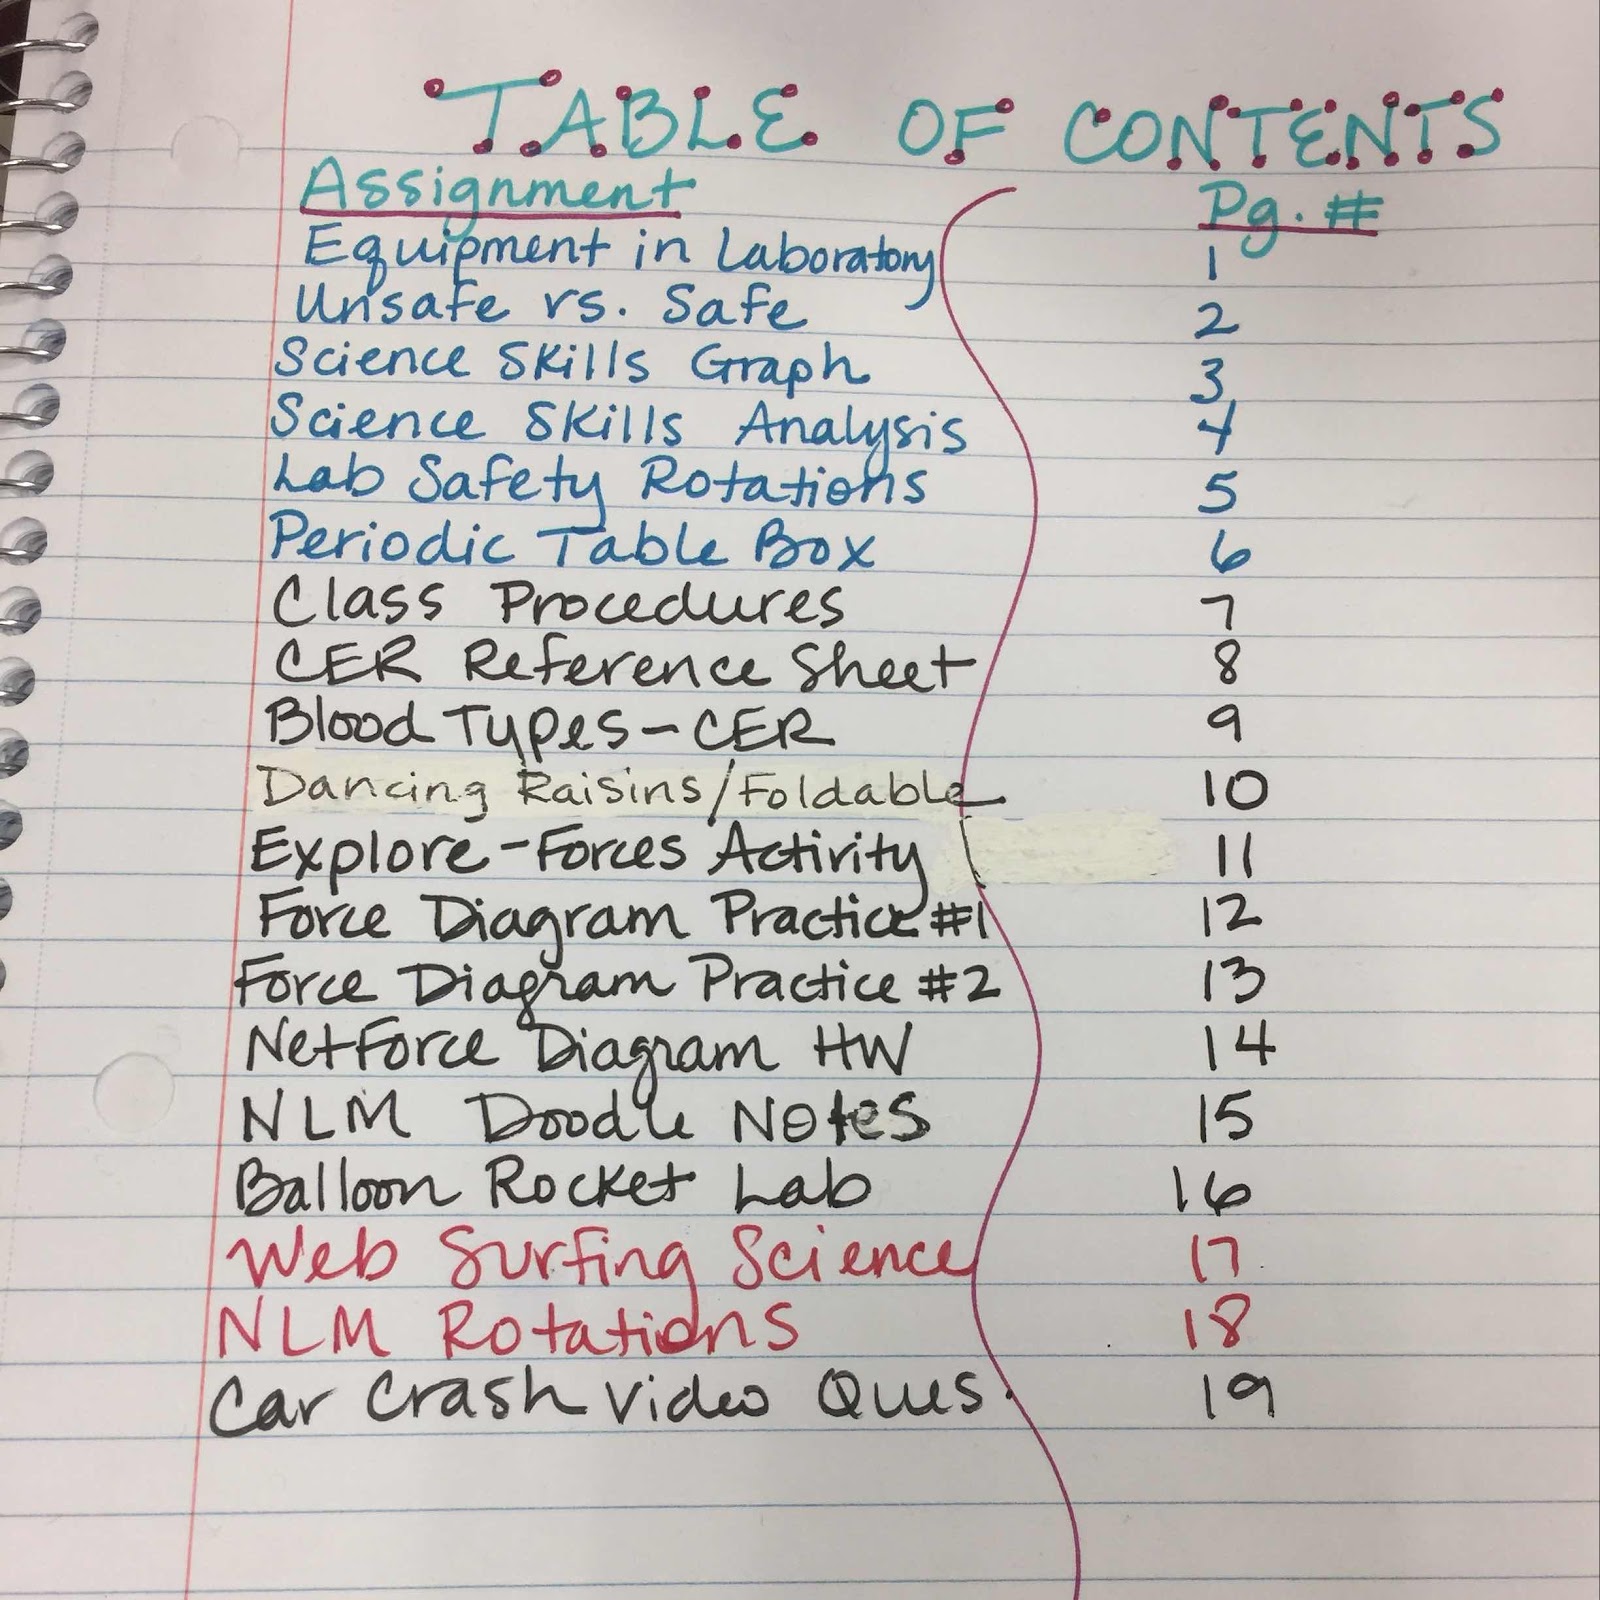 TABLE OF CONTENTS
Assignment Pg. #
Equipment in Laboratory 1
Unsafe vs. Safe 2
Science Skills Graph 3
Science Skills Analysis 4
Lab Safety Rotations 5
Periodic Table Box 6
Class Procedures 7
CER Reference Sheet 8
Blood Types - CER 9
Dancing Raisins/Foldable 10
Explore - Forces Activity 11
Force Diagram Practice #1 12
Force Diagram Practice #2 13
Net Force Diagram HW 14
NLM Doodle Notes 15
Balloon Rocket Lab 16
Web Surfing Science 17
NLM Rotations 18
Car Crash Video Ques. 19